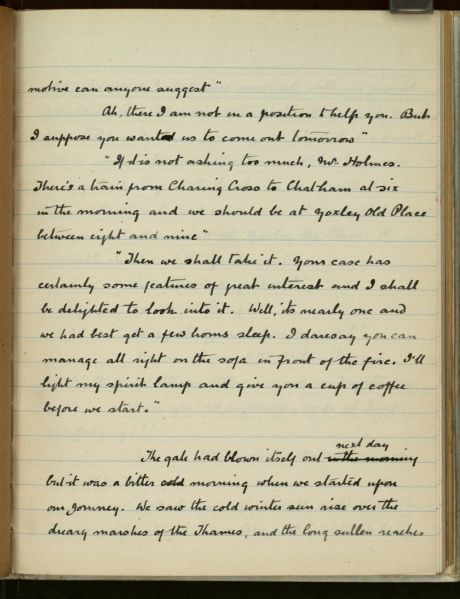 motive can anyone suggest"
Ah, there I am not in a position to help you. But
I suppose you wanted us to come out tomorrow"
"If it is not asking too much, Mr. Holmes.
There's a train from Charing Cross to Chatham at six
in the morning and we should be at Yoxley Old Place
between eight and nine"
"Then we shall take it. Your case has
certainly some features of great interest and I shall
be delighted to look into it. Well, its nearly one and
we had best get a few hours sleep. I daresay you can
manage all right on the sofa in front of the fire. I'll
light my spirit lamp and give you a cup of coffee
before we start."
next day
The gale had blown itself out in the morning
but it was a bitter cold morning when we started upon
our journey. We saw the cold winter sun rise over the
dreary marshes of the Thames, and the long sullen reaches